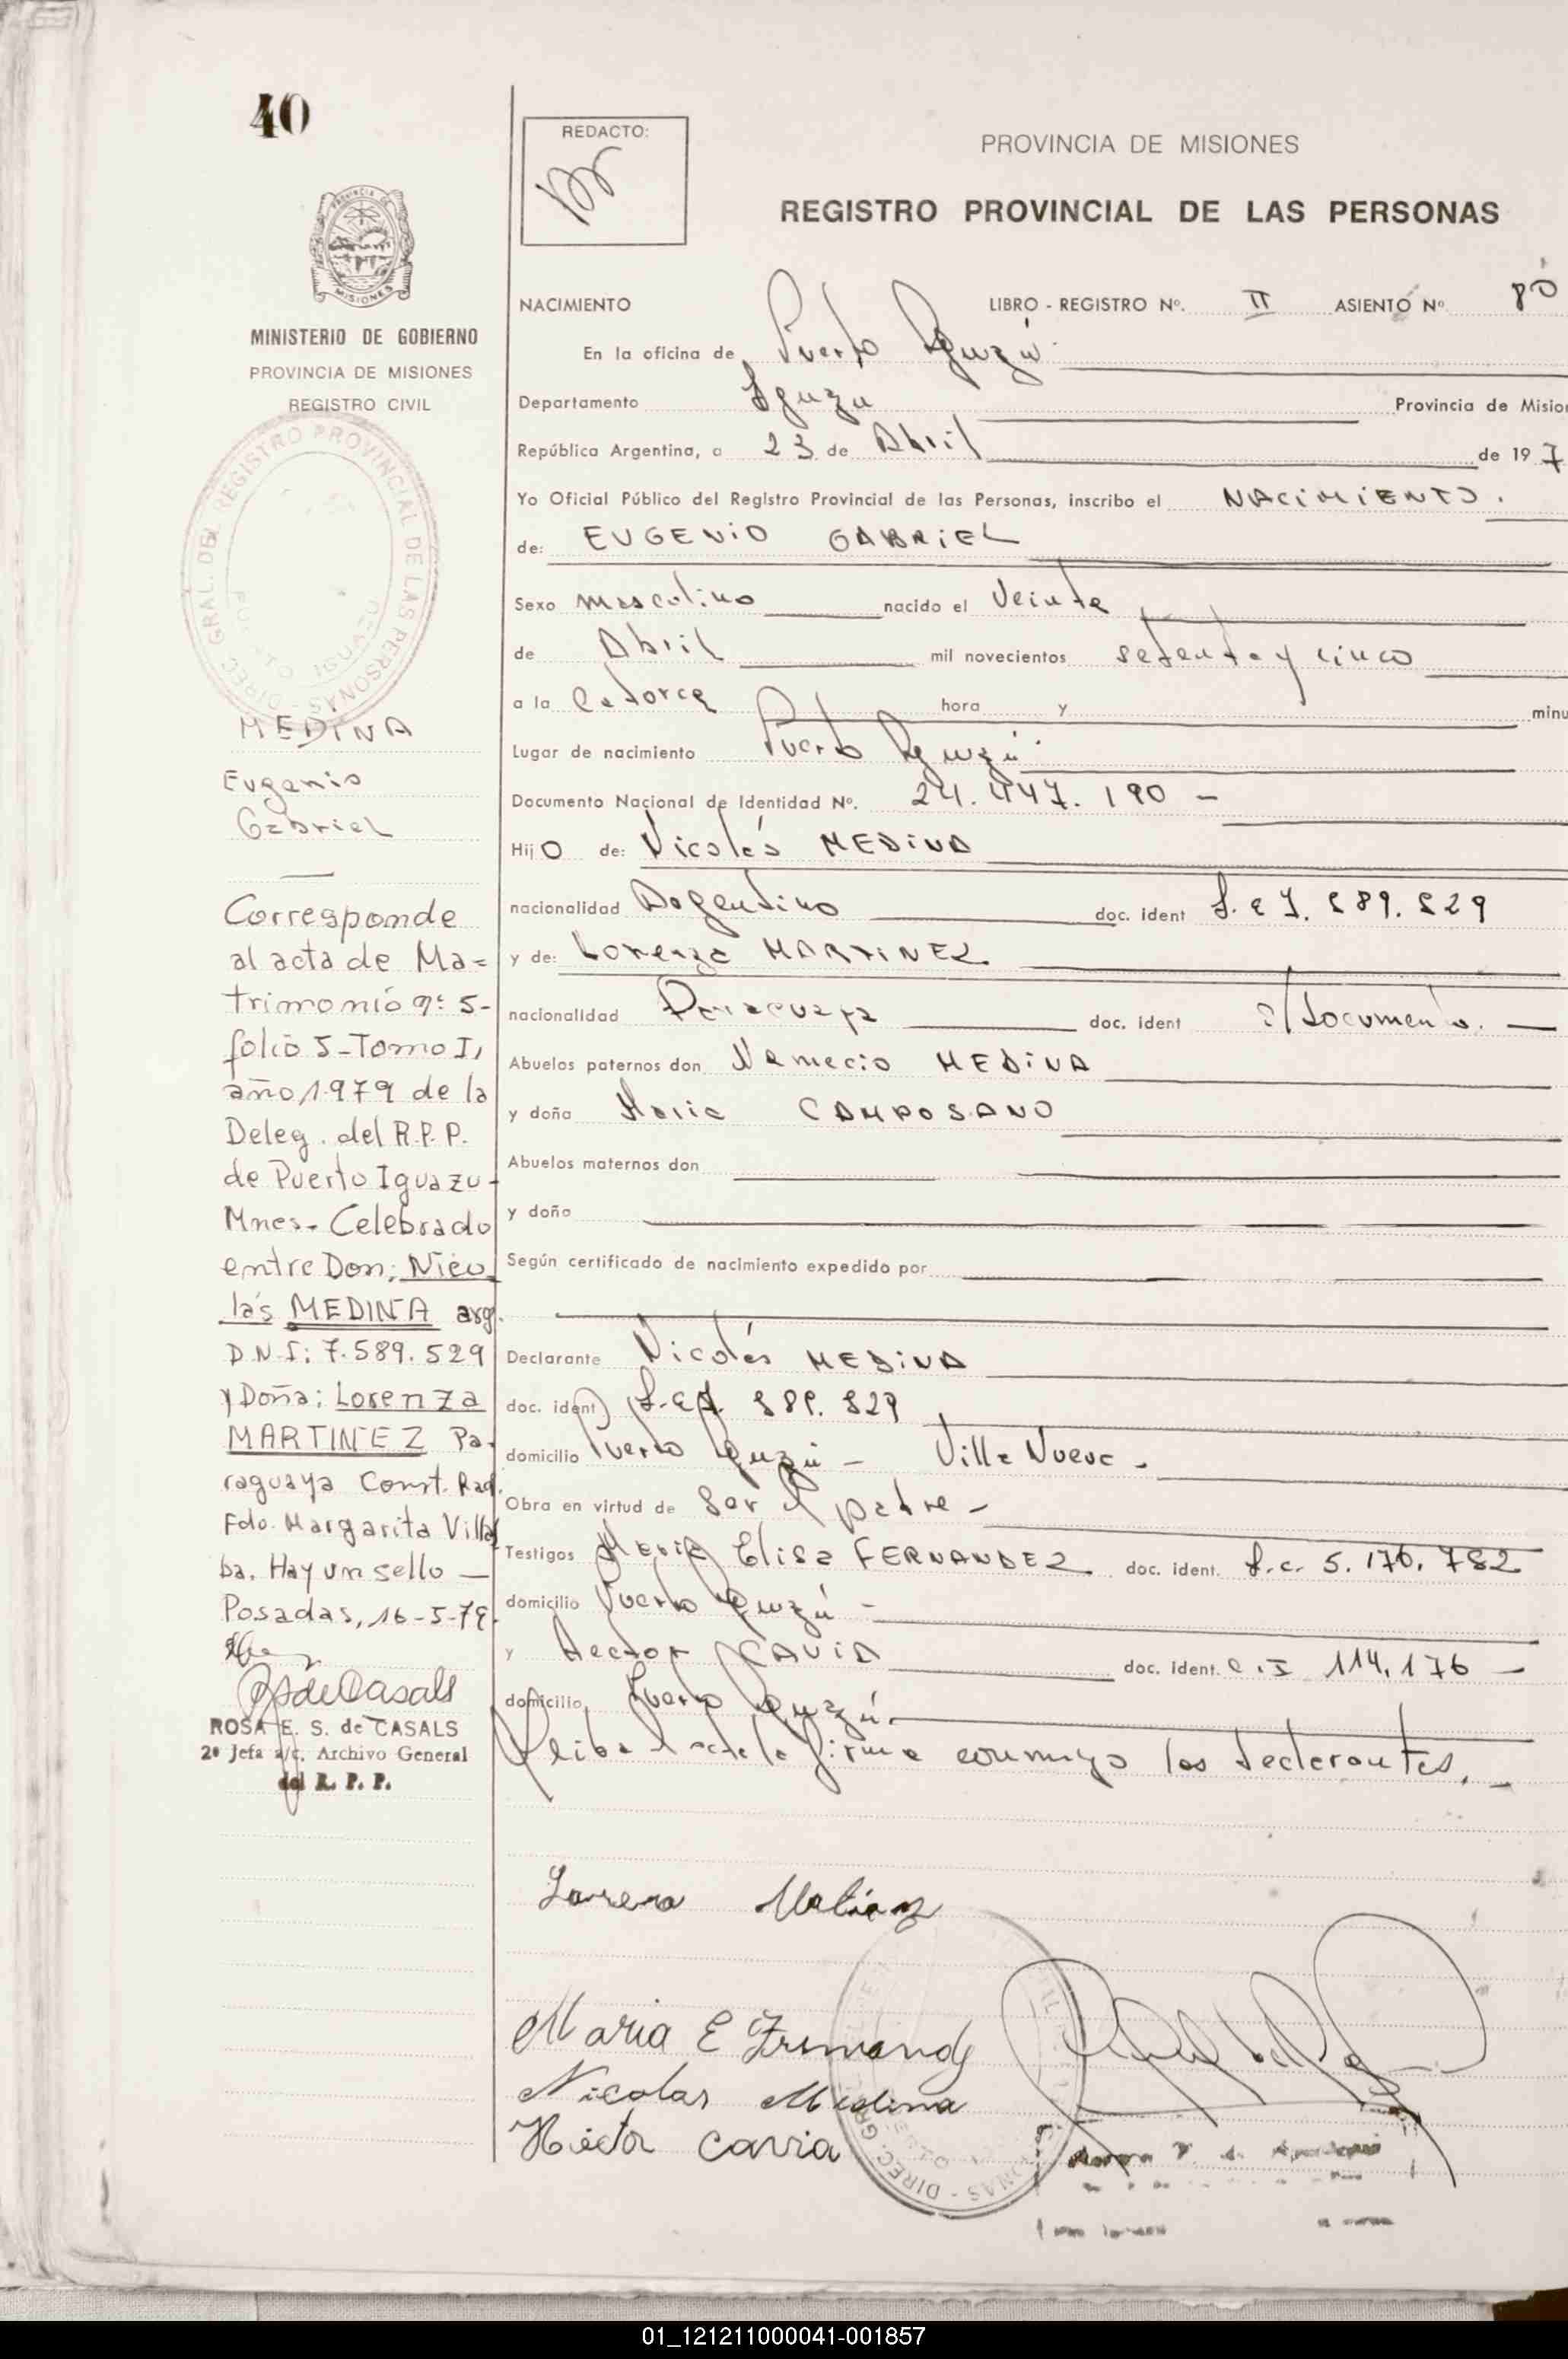 40
REDACTO:
PROVINCIA DE MISIONES
REGISTRO PROVINCIAL DE LAS PERSONAS
PROVINCIA DE
MISIONES
MINISTERIO DE GOBIERNO
PROVINCIA DE MISIONES
REGISTRO CIVIL
DIREC. GRAL. DEL REGISTRO PROVINCIAL DE LAS PERSONAS -
PUERTO IGUAZU
MEDINA
Eugenio
Gabriel
Corresponde
al acta de Ma=
trimonio nº: 5-
folio 5-Tomo I,
año 1.979 de la
Deleg. del R.P.P.
de Puerto Iguazu-
Mnes. Celebrado
entre Don; Nico
lás MEDINA arg.
D.N.I: 7.589.529
y Doña; Lorenza
MARTINEZ Pa-
raguaya Const. Rad.
Fdo. Margarita Villal
ba. Hay un sello —
Posadas, 16-5-79.
RSdeCasals
ROSA E. S. de CASALS
2º Jefa a/c. Archivo General
del R. P. P.
NACIMIENTO LIBRO - REGISTRO Nº. II ASIENTO Nº 80
En la oficina de Puerto Iguazú
Departamento Iguazú Provincia de Misio
República Argentina, a 23 de Abril de 19 7
Yo Oficial Público del Registro Provincial de las Personas, inscribo el NACIMIENTO.
de: EUGENIO GABRIEL
Sexo masculino nacido el Veinte
de Abril mil novecientos setenta y cinco
a la Catorce hora y minu
Lugar de nacimiento Puerto Iguazú
Documento Nacional de Identidad Nº. 24.447.190 -
Hijo de: Nicolás MEDINA
nacionalidad Argentino doc. ident L.e 7.589.529
y de: Lorenza MARTINEZ
nacionalidad Paraguaya doc. ident s/documento. —
Abuelos paternos don Nemecio MEDINA
y doña Maria CAMPOSANO
Abuelos maternos don
y doña
Según certificado de nacimiento expedido por
Declarante Nicolás MEDINA
doc. ident L.e 7.589.529
domicilio Puerto Iguazú - Villa Nueva -
Obra en virtud de Ser el padre -
Testigos Maria Elisa FERNANDEZ doc. ident. L.c. 5.176.782
domicilio Puerto Iguazú -
y Hector CAVIA doc. ident. C.I 114.176 -
domicilio Puerto Iguazú.
Leida el acta la firma conmigo los declarantes. -
Maria E Frenandz
Nicolas Medina
Hector Cavia
01_121211000041-001857